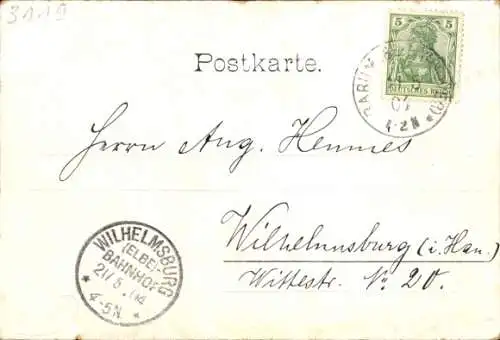 31.19
5 5
DEUTSCHES REICH
Postkarte.
04
1-2N
Herrn Aug. Hennes
WILHELMSBURG
(ELBE)-
BAHNHOF
21/5 04
* 4-5N *
Wilhelmsburg (i. Han.)
Wittestr. No 20.